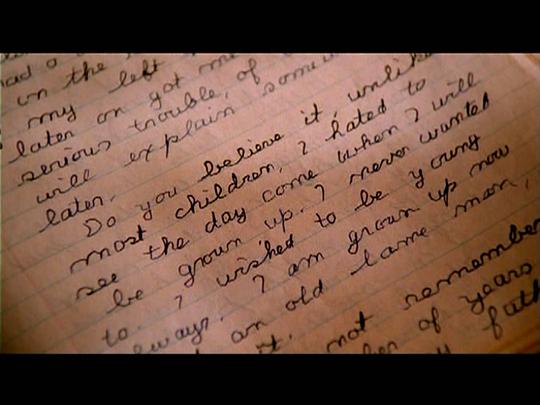 had a
on the
my left
later on got me
serious trouble, of
will explain
later.
Do you believe it, unlike
most children, I hated to
see the day come when I will
be grown up. I never wanted
to. I wished to be young
always. I am grown up now
an old lame man,
it. not remember
of years